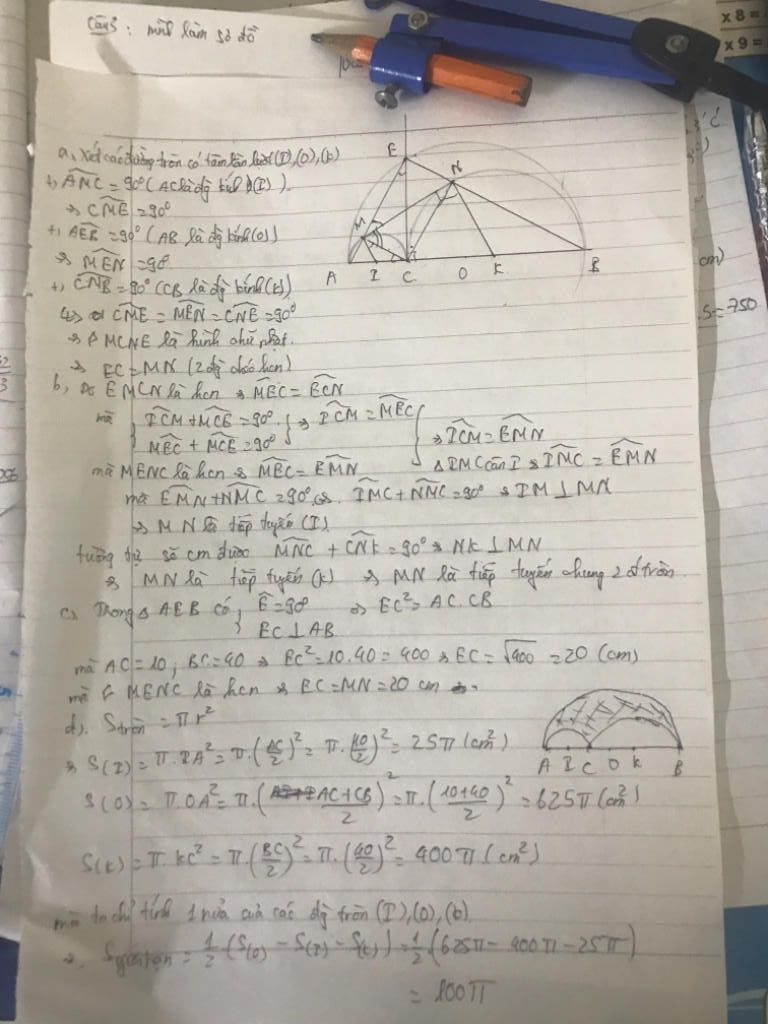 Câu 3: mình làm sơ đồ
x 8 =
x 9 =
a, Xét các đường tròn có tâm lần lượt (I), (O), (k)
+) ∠AMC = 90° (AC là đg kính (I)).
→ ∠CME = 90°
+) ∠AEB = 90° (AB là đg kính (O))
→ ∠MEN = 90°
+) ∠CNB = 90° (CB là đg kính (k))
∠CME = ∠MEN = ∠CNE = 90°
→ MCNE là hình chữ nhật.
→ EC = MN (2 đg chéo hcn)
E
N
M
A I C O K B
cm)
S = 750
b, EMCN là hcn → ∠MEC = ∠ECN
mà { ∠ICM + ∠MCE = 90°
∠MEC + ∠MCE = 90° } → ∠ICM = ∠MEC
mà MENC là hcn → ∠MEC = ∠EMN
} → ∠ICM = ∠EMN
Δ IMC cân I → ∠IMC = ∠EMN
mà ∠EMN + ∠NMC = 90° → ∠IMC + ∠NMC = 90° → IM ⊥ MN
→ MN là tiếp tuyến (I)
tương tự sẽ cm được ∠MNC + ∠CNK = 90° → NK ⊥ MN
→ MN là tiếp tuyến (k) → MN là tiếp tuyến chung 2 đ tròn.
c, Trong Δ AEB có { ∠E = 90° → EC² = AC.CB
EC ⊥ AB
mà AC = 10, BC = 40 → EC² = 10.40 = 400 → EC = √400 = 20 (cm)
mà MENC là hcn → EC = MN = 20 cm
d). S tròn = πr²
A I C O K B
→ S(I) = π.IA² = π.(AC/2)² = π.(10/2)² = 25π (cm²)
S(O) = π.OA² = π.((AC+CB)/2)² = π.((10+40)/2)² = 625π (cm²)
S(k) = π.KC² = π.(BC/2)² = π.(40/2)² = 400π (cm²)
mà ta chỉ tính 1 nửa của các đg tròn (I), (O), (k)
→ S giới hạn = 1/2 (S(O) − S(I) − S(k)) = 1/2 (625π − 400π − 25π)
= 100π